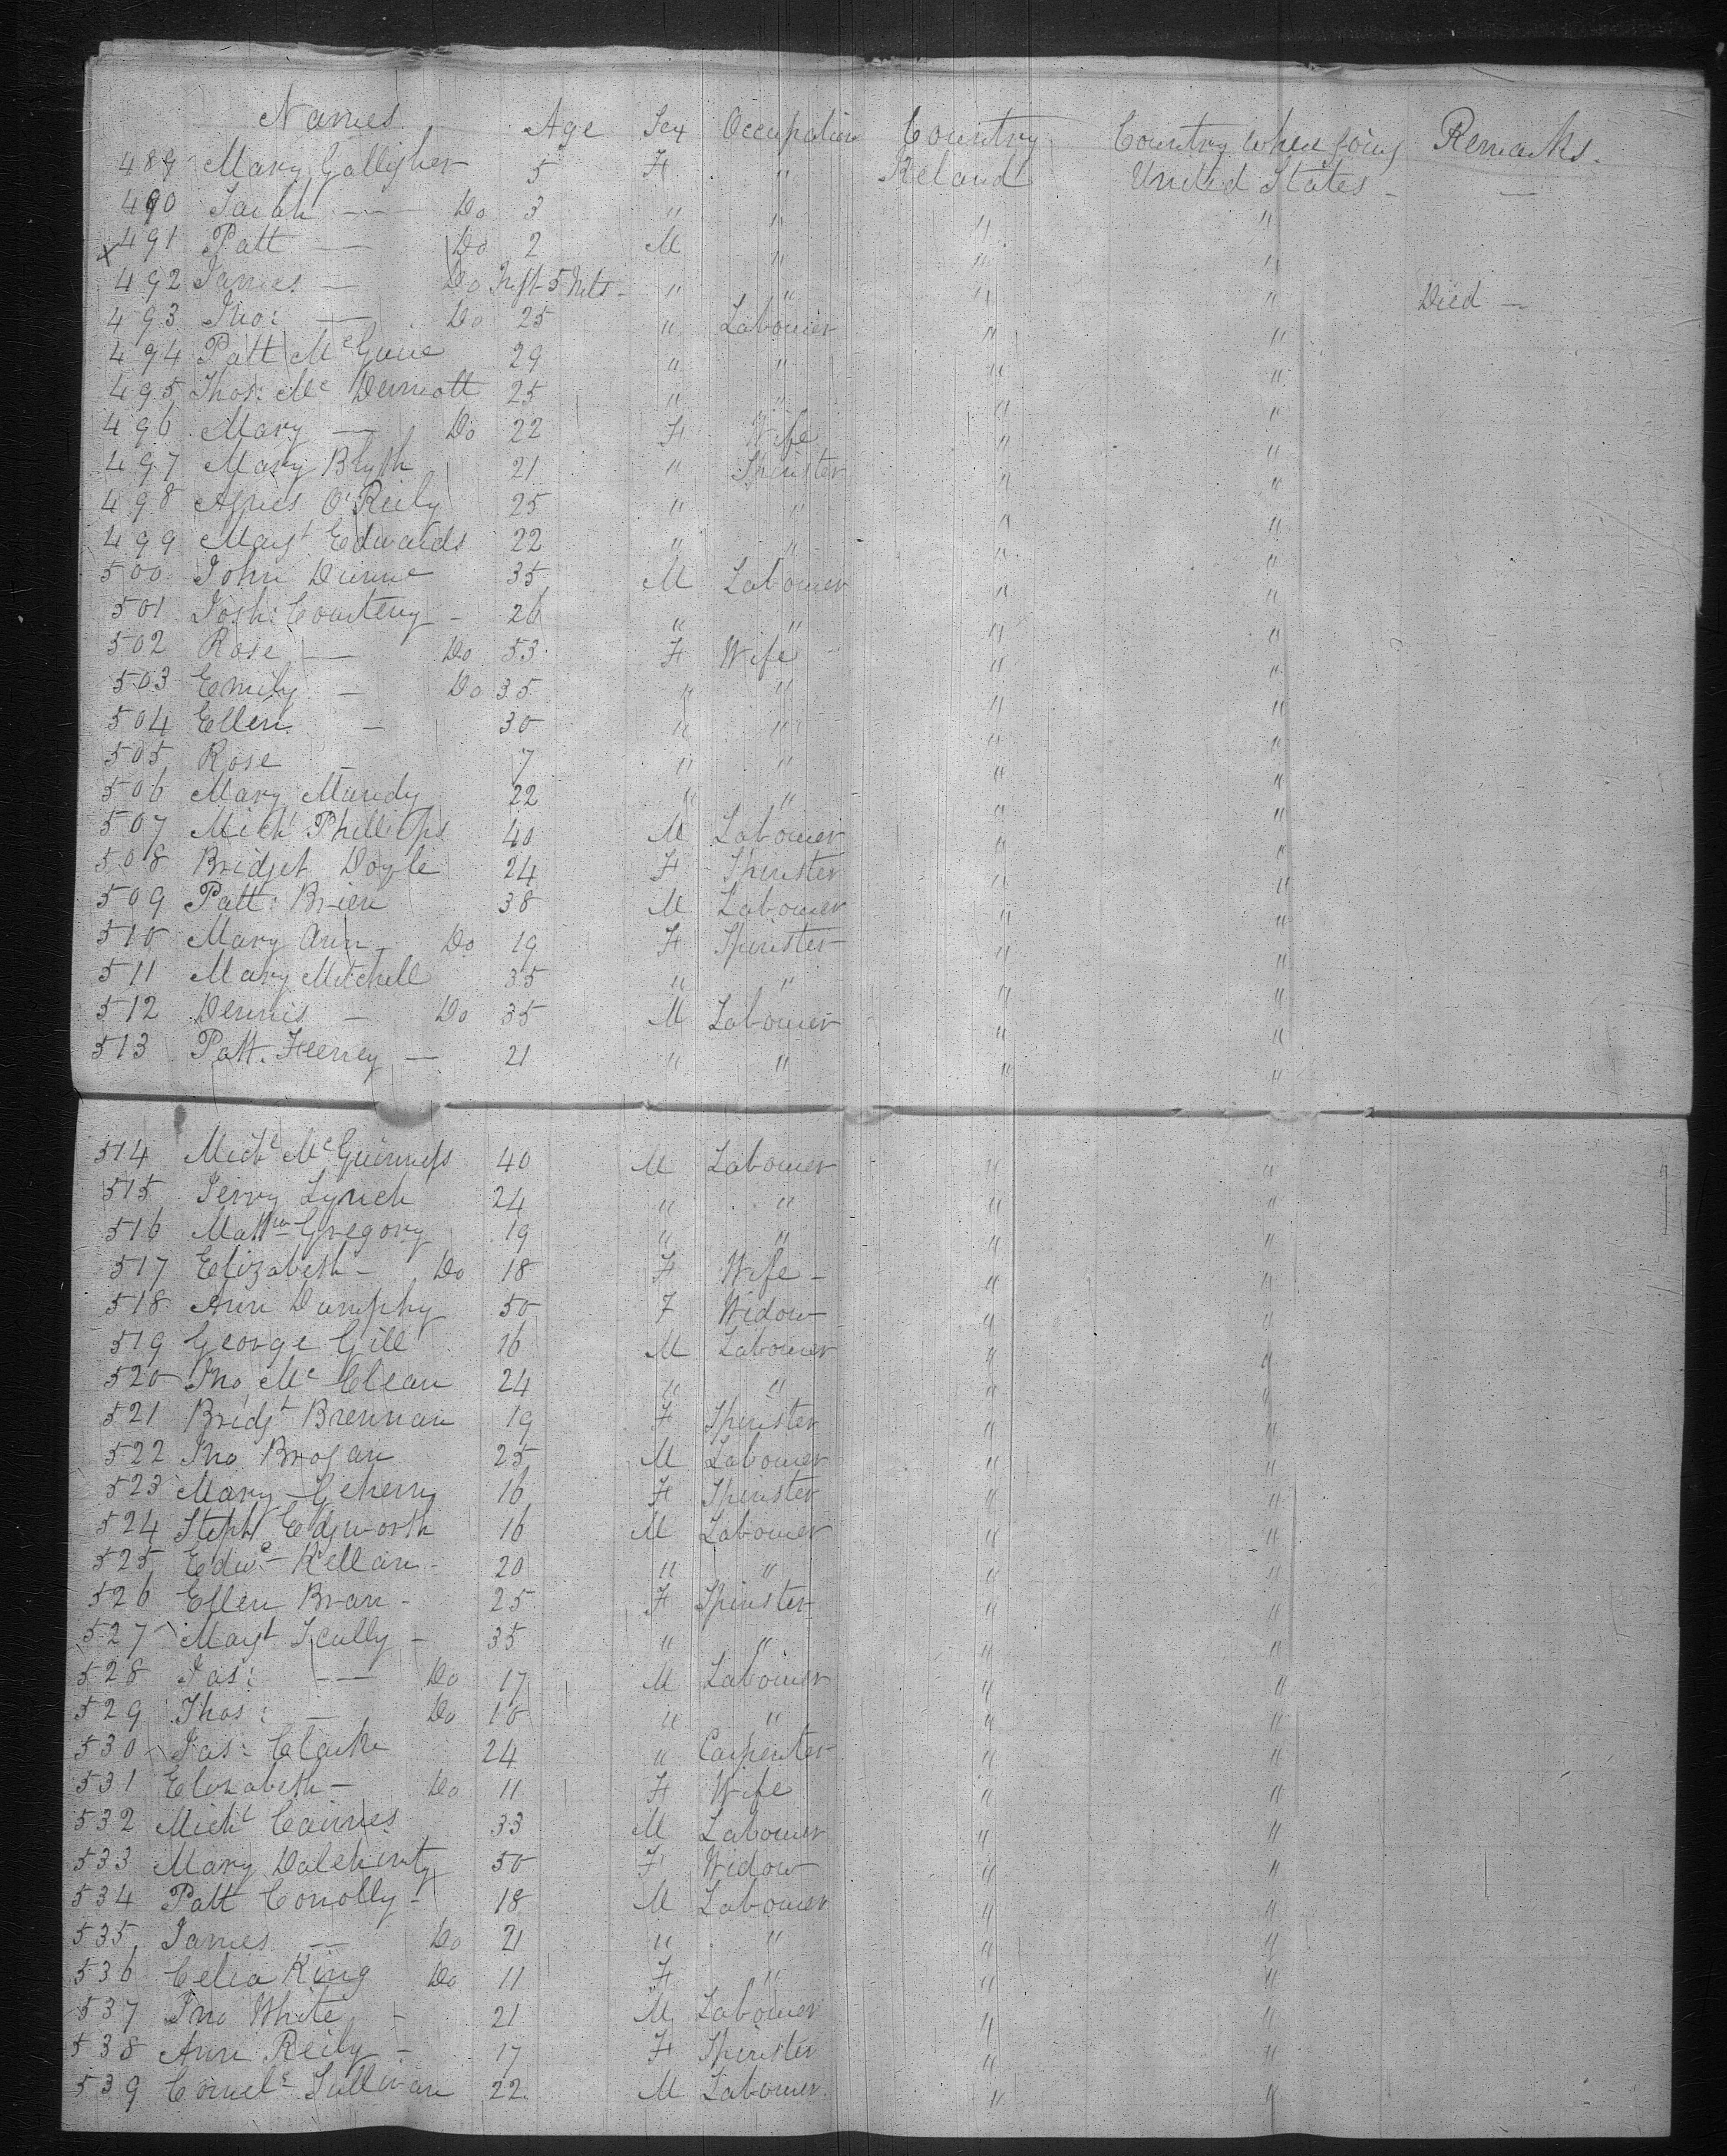 Names Age Sex Occupation Country Country where going Remarks.
489 Mary Gallegher 5 F " Reland United States - —
490 Sarah —— Do 3 " " " "
x 491 Patt — Do 2 M " " "
492 James — Do Inft- 5 Mts - " " " " Died —
493 Jno: — Do 25 " Labourer " "
494 Patt McGuire 29 " " " "
495 Thos: Mc Dermott 25 " " " "
496 Mary — Do 22 F Wife " "
497 Mary Blyth 21 " Spinster " "
498 Agnes O'Reily 25 " " " "
499 Margt Edwards 22 " " " "
500 John Dunne 35 M Labourer " "
501 Josh: Courteny - 26 " " " "
502 Rose — Do 53 F Wife " "
503 Emily - Do 35 " " " "
504 Ellen - 30 " " " "
505 Rose - 7 " " " "
506 Mary Mundy 22 " " " "
507 Michl Phillips 40 M Labourer " "
508 Bridget Doyle 24 F Spinster " "
509 Patt: Brien 38 M Labourer " "
510 Mary Ann - Do 19 F Spinster " "
511 Mary Mitchell 35 " " " "
512 Dennis - Do 35 M Labourer " "
513 Patt. Feeney — 21 " " " "
514 Michl McGuinness 40 M Labourer " "
515 Jerry Lynch 24 " " " "
516 Mattw Gregory 19 " " " "
517 Elizabeth - Do 18 F Wife - " "
518 Ann Dumphy 50 F Widow " "
519 George Gill 16 M Labourer " "
520 Jno Mc Clean 24 " " " "
521 Bridgt Brennan 19 F Spinster " "
522 Jno Brogan 25 M Labourer " "
523 Mary Gehery 16 F Spinster " "
524 Stephn Edgworth 16 M Labourer " "
525 Edwd Kellan - 20 " " " "
526 Ellen Bran - 25 F Spinster " "
527 Margt Scully - 35 " " " "
528 Jas: —— Do 17 M Labourer " "
529 Thos: — Do 10 " " " "
530 Jas: Clarke 24 " Carpenter " "
531 Elizabeth - Do 11 F Wife " "
532 Michl Cairnes 33 M Labourer " "
533 Mary Dalehenty 50 F Widow " "
534 Patt Conolly - 18 M Labourer " "
535 James — Do 21 " " " "
536 Celia King Do 11 F " " "
537 Jno White - 21 M Labourer " "
538 Ann Reily - 17 F Spinster " "
539 Cornels Sullivan 22 M Labourer " "